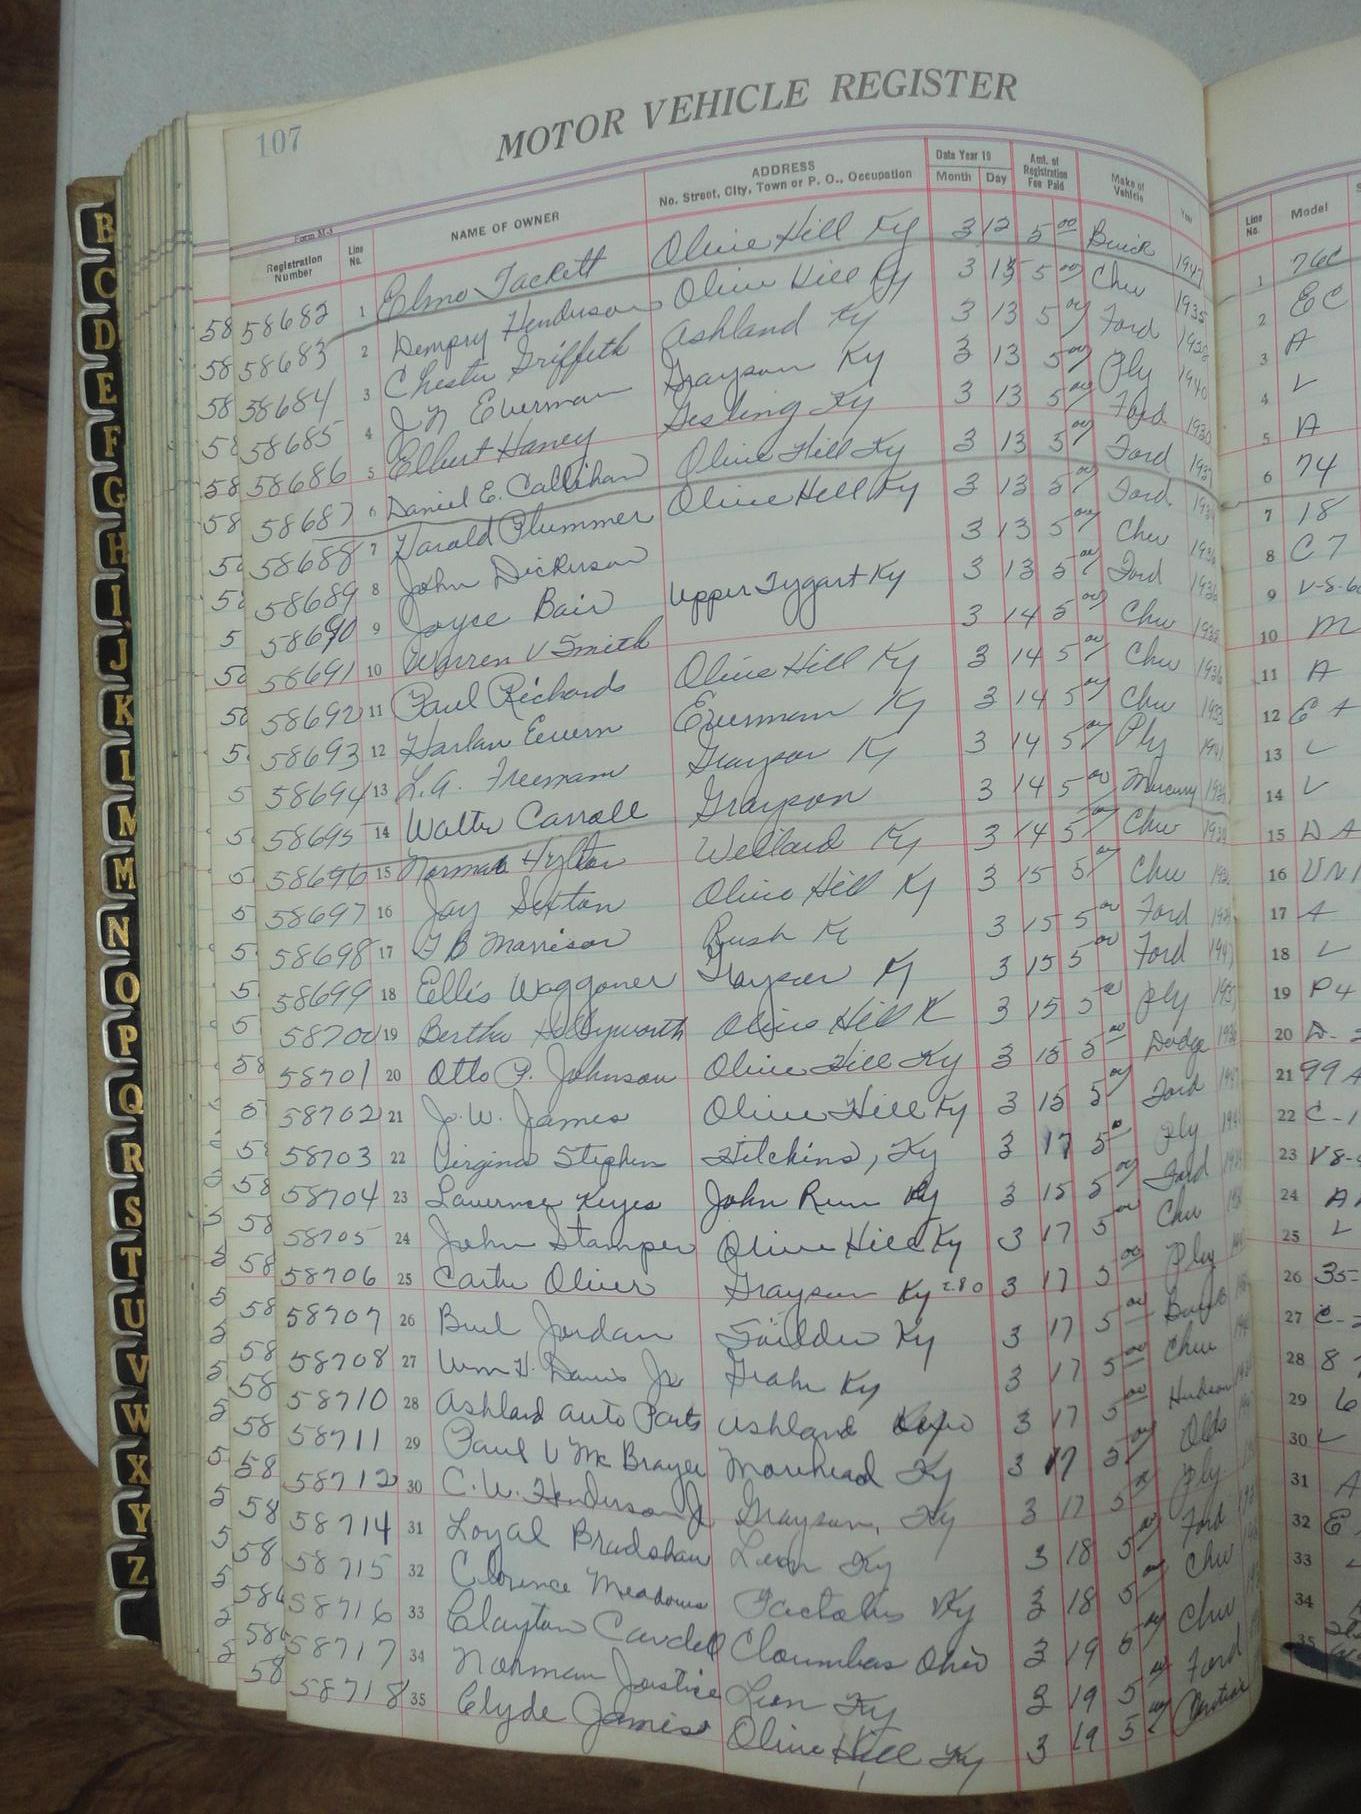 107
MOTOR VEHICLE REGISTER
Form M-5
Registration Number Line No. NAME OF OWNER ADDRESS No. Street, City, Town or P. O., Occupation Date Year 19 Month Day Amt. of Registration Fee Paid Make of Vehicle Year Line No. Model
58682 1 Elmo Tackett Olive Hill Ky 3 12 5 00 Buick 1947 1 76C
58683 2 Dempry Henderson Olive Hill Ky 3 13 5 00 Chev 1935 2 EC
58684 3 Chester Griffeth Ashland Ky 3 13 5 00 Ford 3 A
58685 4 J N Everman Grayson Ky 3 13 5 00 Ply 1940 4 L
58686 5 Elbert Haney Gesling Ky 3 13 5 00 Ford 1930 5 A
58687 6 Daniel E. Callihan Olive Hill Ky 3 13 5 00 Ford 1937 6 74
58688 7 Harold Plummer Olive Hill Ky 3 13 5 00 Ford 7 18
58689 8 John Dickerson 3 13 5 00 Chev 8 C 7
58690 9 Joyce Bair Upper Tygart Ky 3 13 5 00 Ford 1936 9 V-8-6
58691 10 Warren V Smith 3 14 5 00 Chev 10 M
58692 11 Paul Richards Olive Hill Ky 3 14 5 00 Chev 1936 11 A
58693 12 Harlan Everm Everman Ky 3 14 5 00 Chev 1933 12 E A
58694 13 L.A. Freemann Grayson Ky 3 14 5 00 Ply 1941 13 L
58695 14 Walter Carroll Grayson 3 14 5 00 Mercury 1939 14 L
58696 15 Norman Hylton Willard Ky 3 14 5 00 Chev 15 D A
58697 16 Jay Sexton Olive Hill Ky 3 15 5 00 Chev 16
58698 17 G B Morrison Rush K 3 15 5 00 Ford 17 A
58699 18 Ellis Waggoner Grayson Ky 3 15 5 00 Ford 18 L
58700 19 Bertha Olive Hill K 3 15 5 00 Ply 19 P4
58701 20 Otto P. Johnson Olive Hill Ky 3 15 5 00 Dodge 20 D-
58702 21 J. W. James Olive Hill Ky 3 15 5 00 Ford 21 99 A
58703 22 Virginia Stephen Hitchins, Ky 3 17 5 00 Ply 22 C-1
58704 23 Lawrence Keyes John Run Ky 3 15 5 00 Ford 23 V8-
58705 24 John Stamper Olive Hill Ky 3 17 5 00 Chev 24 A
58706 25 Carter Oliver Grayson Ky 280 3 17 5 00 Ply 25 L
58707 26 Burl Jordan Ky 3 17 5 00 Buick 26 35
58708 27 Wm H. Davis Jr Grahn Ky 3 17 5 00 Chev 27 C-2
58710 28 Ashland Auto Parts Ashland 3 17 5 00 Hudson 28 8
58711 29 Paul V McBrayer Morehead Ky 3 17 5 00 Olds 29 6
58712 30 C. W. Henderson Jr Grayson, Ky 3 17 5 00 Ply 30 L
58714 31 Loyal Bradshaw Leon Ky 3 18 5 00 Ford 31 A
58715 32 Clorence Meadows Pactolus Ky 3 18 5 00 Chev 32 E
58716 33 Clayton Caudell Cloumbas Ohio 3 19 5 00 Chev 33 L
58717 34 Norman Justice Leon Ky 3 19 5 00 Ford 34
58718 35 Clyde James Olive Hill Ky 3 19 5 00 Pontiac 35
B
C
D
E
F
G
H
I
J
K
L
M
M
N
O
P
Q
R
S
T
U
V
W
X
Y
Z